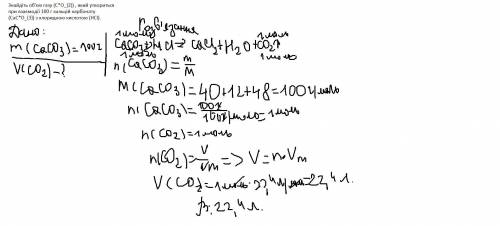 Знайдіть об'єм газу (C*O_{2}) , який утвориться
при взаємодії 100 г кальцій карбонату
(CaC*O_{3}) з хлоридною кислотою (HCl).
Дано:
m(CaCO3)=100г
V(CO2)-?
Розв'язання
1 моль 1 моль
CaCO3+HCl=CaCl2+H2O+CO2↑
1 моль 1 моль
n(CaCO3)=m/M
M(CaCO3)=40+12+48=100г/моль
n(CaCO3)=100г/100г/моль=1моль
n(CO2)=1моль
n(CO2)=V/Vm=>V=n·Vm
V(CO2)=1моль·22,4л/моль=22,4л.
В:22,4л.